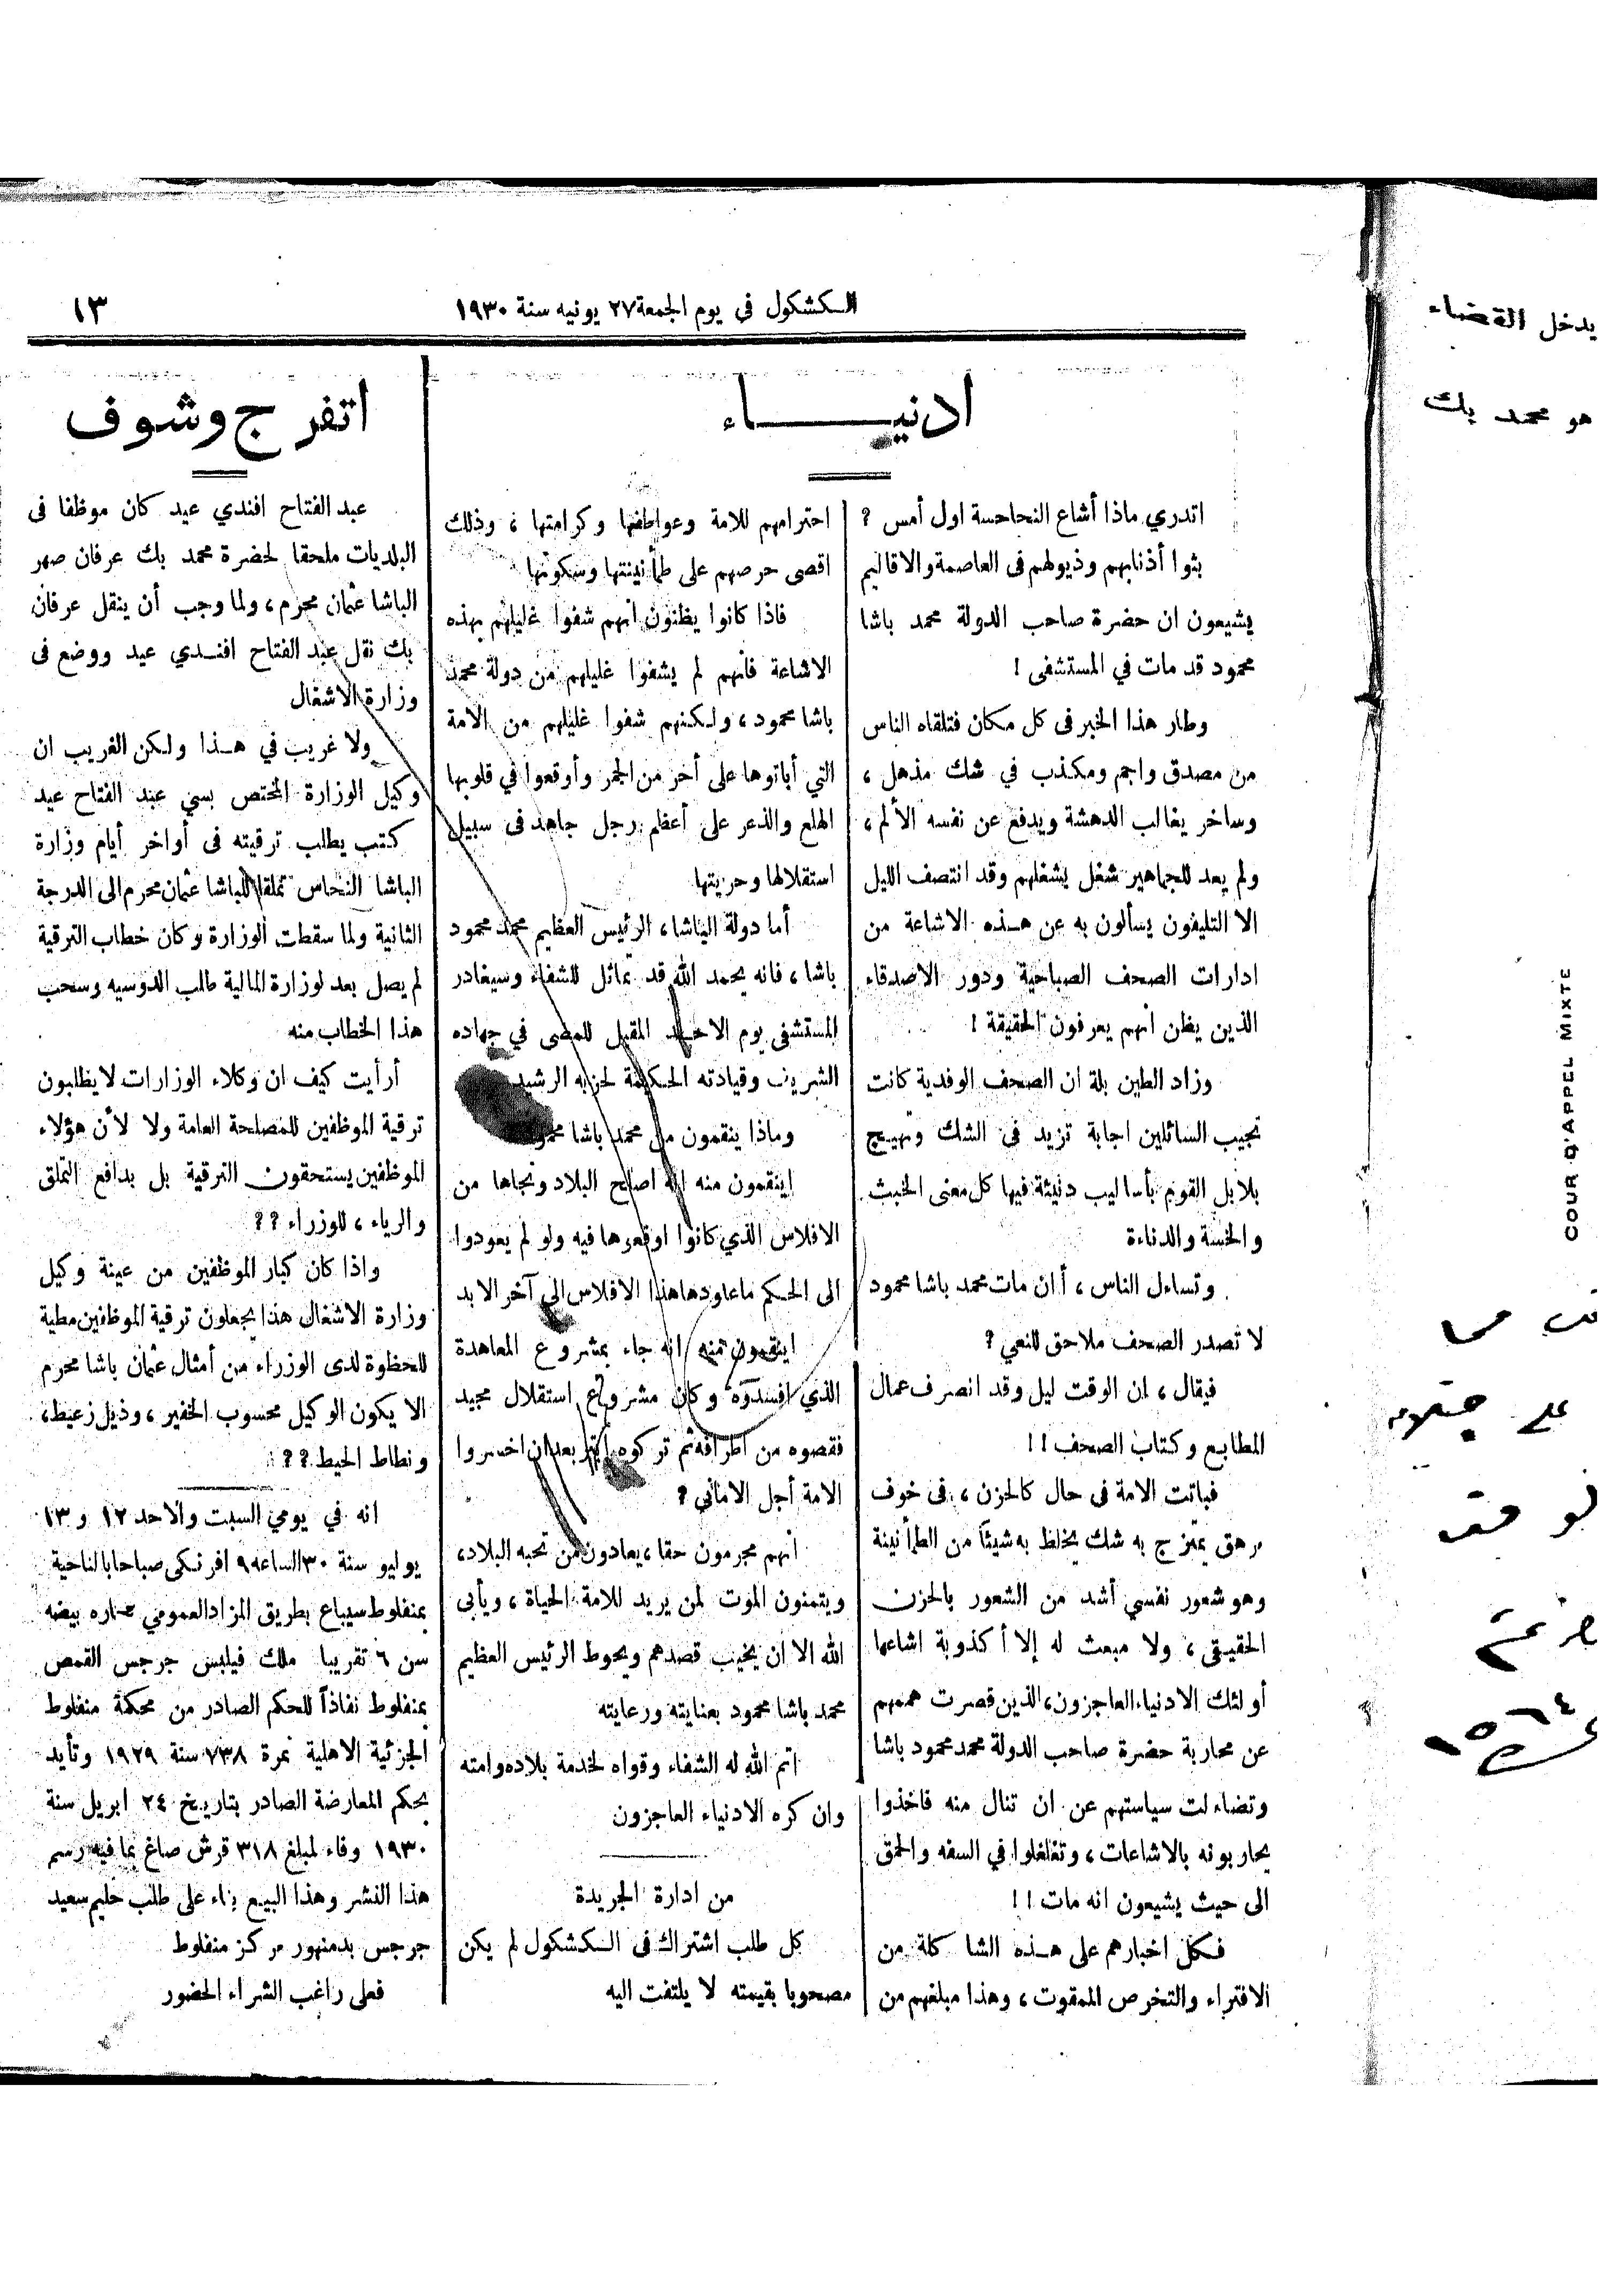 الكشكول في يوم الجمعة ٢٧ يونيه سنة ١٩٣٠
١٣
ادنياء
اتدري ماذا أشاع النحاحسة اول أمس ؟
بثوا أذنابهم وذيولهم في العاصمة والاقاليم
يشيعون ان حضرة صاحب الدولة محمد باشا
محمود قد مات في المستشفى !
وطار هذا الخبر في كل مكان فتلقاه الناس
من مصدق واجم ومكذب في شك مذهل ،
وساخر يغالب الدهشة ويدفع عن نفسه الألم ،
ولم يعد للجماهير شغل يشغلهم وقد انتصف الليل
الا التليفون يسألون به عن هذه الاشاعة من
ادارات الصحف الصباحية ودور الاصدقاء
الذين يظن انهم يعرفون الحقيقة !
وزاد الطين بلة ان الصحف الوفدية كانت
تجيب السائلين اجابة تزيد في الشك وتهيج
بلابل القوم بأساليب دنيئة فيها كل معنى الخبث
والخسة والدناءة
وتساءل الناس ، أان مات محمد باشا محمود
لا تصدر الصحف ملاحق للنعي ؟
فيقال ، ان الوقت ليل وقد انصرف عمال
المطابع وكتاب الصحف ! !
فباتت الامة في حال كالحزن ، في خوف
مرهق يمتزج به شك يخلط به شيئا من الطمأنينة
وهو شعور نفسي أشد من الشعور بالحزن
الحقيقي ، ولا مبعث له إلا أكذوبة اشاعها
أولئك الادنياء العاجزون ، الذين قصرت هممهم
عن محاربة حضرة صاحب الدولة محمد محمود باشا
وتضاءلت سياستهم عن ان تنال منه فاخذوا
يحاربونه بالاشاعات ، وتغلغلوا في السفه والحمق
الى حيث يشيعون انه مات ! !
فكل اخبارهم على هذه الشاكلة من
الافتراء والتخرص الممقوت ، وهذا مبلغهم من
احترامهم للامة وعواطفها وكرامتها ، وذلك
اقصى حرصهم على طمأنينتها وسكونها
فاذا كانوا يظنون انهم شفوا غليلهم بهذه
الاشاعة فانهم لم يشفوا غليلهم من دولة محمد
باشا محمود ، ولكنهم شفوا غليلهم من الامة
التي أباتوها على أحر من الجمر وأوقعوا في قلوبها
الهلع والذعر على أعظم رجل جاهد في سبيل
استقلالها وحريتها
أما دولة الباشا ، الرئيس العظيم محمد محمود
باشا ، فانه بحمد الله قد تماثل للشفاء وسيغادر
المستشفى يوم الاحد المقبل للمضى في جهاده
الشريف وقيادته الحكيمة لحزبه الرشيد
وماذا ينقمون من محمد باشا محمود
اينقمون منه انه اصلح البلاد ونجاها من
الافلاس الذي كانوا اوقعوها فيه ولو لم يعودوا
الى الحكم ما عاودها هذا الافلاس الى آخر الابد
اينقمون منه انه جاء بمشروع المعاهدة
الذي افسدوه وكان مشروع استقلال مجيد
فقصوه من اطرافه ثم تركوه بعد ان اخسروا
الامة أجل الاماني ؟
انهم مجرمون حقا ، يعادون من تحبه البلاد ،
ويتمنون الموت لمن يريد للامة الحياة ، ويأبى
الله الا ان يخيب قصدهم ويحوط الرئيس العظيم
محمد باشا محمود بعنايته ورعايته
اتم الله له الشفاء وقواه لخدمة بلاده وامته
وان كره الادنياء العاجزون
من ادارة الجريدة
كل طلب اشتراك في الكشكول لم يكن
مصحوبا بقيمته لا يلتفت اليه
اتفرج وشوف
عبد الفتاح افندي عيد كان موظفا في
البلديات ملحقا لحضرة محمد بك عرفان صهر
الباشا عثمان محرم ، ولما وجب أن ينقل عرفان
بك نقل عبد الفتاح افندي عيد ووضع في
وزارة الاشغال
ولا غريب في هذا ولكن الغريب ان
وكيل الوزارة المختص بسي عبد الفتاح عيد
كتب يطلب ترقيته في أواخر أيام وزارة
الباشا النحاس تملقا للباشا عثمان محرم الى الدرجة
الثانية ولما سقطت الوزارة وكان خطاب الترقية
لم يصل بعد لوزارة المالية طلب الدوسيه وسحب
هذا الخطاب منه
أرأيت كيف ان وكلاء الوزارات لا يطلبون
ترقية الموظفين للمصلحة العامة ولا لأن هؤلاء
الموظفين يستحقون الترقية بل بدافع التملق
والرياء ، للوزراء ؟ ؟
واذا كان كبار الموظفين من عينة وكيل
وزارة الاشغال هذا يجعلون ترقية الموظفين مطية
للحظوة لدى الوزراء من أمثال عثمان باشا محرم
الا يكون الوكيل محسوب الخفير ، وذيل زعيط ،
ونطاط الحيط ؟ ؟
انه في يومي السبت والاحد ١٢ و ١٣
يوليو سنة ٣٠ الساعه ٩ افرنكي صباحا بالناحية
بمنفلوط سيباع بطريق المزاد العمومي حماره بيضه
سن ٦ تقريبا ملك فيلبس جرجس القمص
بمنفلوط نفاذاً للحكم الصادر من محكمة منفلوط
الجزئية الاهلية نمرة ٧٣٨ سنة ١٩٢٩ وتأيد
بحكم المعارضة الصادر بتاريخ ٢٤ ابريل سنة
١٩٣٠ وفاء لمبلغ ٣١٨ قرش صاغ بما فيه رسم
هذا النشر وهذا البيع بناء على طلب حليم سعيد
جرجس بدمنهور مركز منفلوط
فعلى راغب الشراء الحضور
يدخل القضاء
هو محمد بك
COUR D'APPEL MIXTE